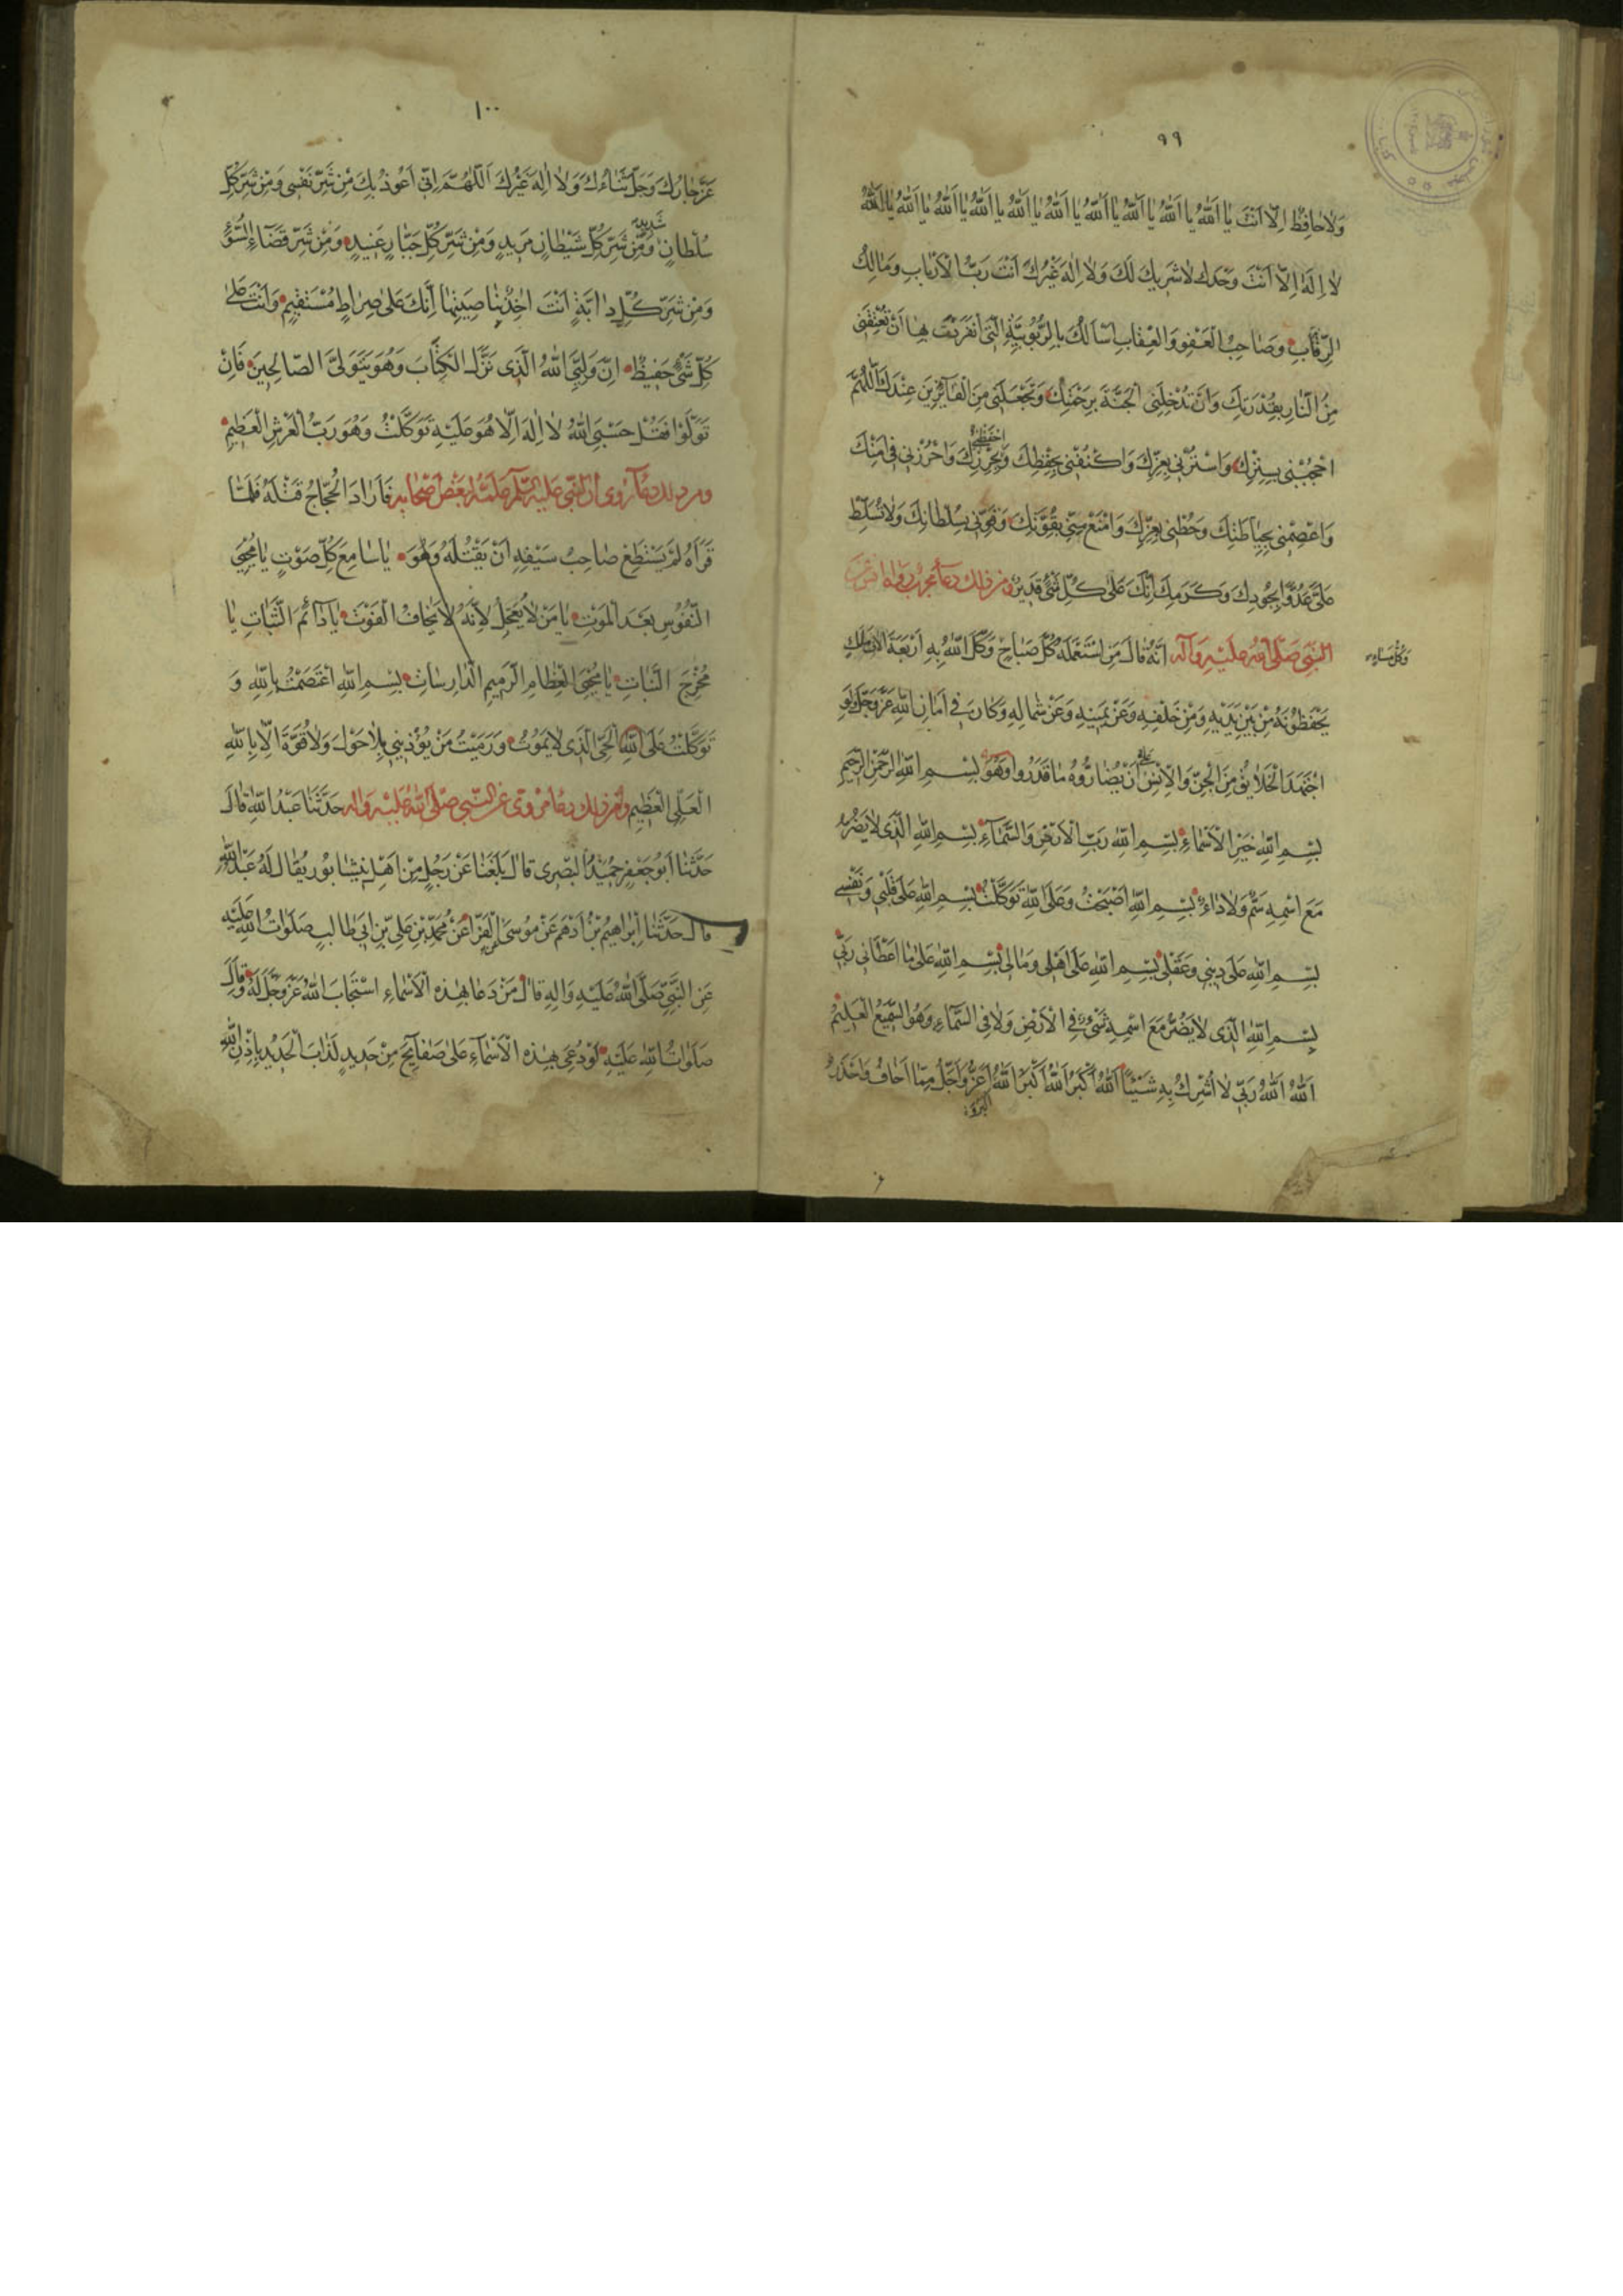 ٩٩
وَلَا حَافِظَ اِلَّا اَنْتَ يَا اَللّٰهُ يَا اَللّٰهُ يَا اَللّٰهُ يَا اَللّٰهُ يَا اَللّٰهُ يَا اَللّٰهُ يَا اَللّٰهُ يَا اَللّٰهُ يَا اَللّٰهُ يَا اَللّٰهُ
لَا اِلٰهَ اِلَّا اَنْتَ وَحْدَكَ لَا شَرِيكَ لَكَ وَلَا اِلٰهَ غَيْرُكَ اَنْتَ رَبُّ الْاَرْبَابِ وَمَالِكُ
الرِّقَابِ وَصَاحِبُ الْعَفْوِ وَالْعِقَابِ اَسْاَلُكَ بِالرُّبُوبِيَّةِ الَّتِى انْفَرَدْتَ بِهَا اَنْ تُعْتِقَنِى
مِنَ النَّارِ بِقُدْرَتِكَ وَاَنْ تُدْخِلَنِى الْجَنَّةَ بِرَحْمَتِكَ وَتَجْعَلَنِى مِنَ الْفَائِزِينَ عِنْدَكَ اَللّٰهُمَّ
احْجُبْنِى بِسِتْرِكَ وَاسْتُرْنِى بِعِزِّكَ وَاكْنُفْنِى بِحِفْظِكَ وَاحْفَظْنِى بِحِرْزِكَ وَاحْرُزْنِى فِى اَمْنِكَ
وَاعْصِمْنِى بِحِيَاطَتِكَ وَحُطْنِى بِعِزِّكَ وَامْنَعْ مِنِّى بِقُوَّتِكَ وَقَوِّنِى بِسُلْطَانِكَ وَلَا تُسَلِّطْ
عَلَىَّ عَدُوًّا بِجُودِكَ وَكَرَمِكَ اِنَّكَ عَلٰى كُلِّ شَىْءٍ قَدِيرٌ ومن ذلك دعاء مجرب رواه انس عن
النبى صَلَّى اللّٰه عَلَيْهِ وَآله اَنَّهُ قَالَ مَنِ اسْتَعْمَلَهُ كُلَّ صَبَاحٍ وَكَّلَ اللّٰهُ بِهِ اَرْبَعَةَ اَمْلَاكٍ
وَكُلَّ مَسَاءٍ
يَحْفَظُونَهُ مِنْ بَيْنِ يَدَيْهِ وَمِنْ خَلْفِهِ وَعَنْ يَمِينِهِ وَعَنْ شِمَالِهِ وَكَانَ فِى اَمَانِ اللّٰهِ عَزَّ وَجَلَّ وَلَوِ
اجْتَهَدَ الْخَلَائِقُ مِنَ الْجِنِّ وَالْاِنْسِ اَنْ يُضَارُّوهُ مَا قَدَرُوا وَهُوَ بِسْمِ اللّٰهِ الرَّحْمٰنِ الرَّحِيمِ
بِسْمِ اللّٰهِ خَيْرِ الْاَسْمَاءِ بِسْمِ اللّٰهِ رَبِّ الْاَرْضِ وَالسَّمَاءِ بِسْمِ اللّٰهِ الَّذِى لَا يَضُرُّ
مَعَ اسْمِهِ سَمٌّ وَلَا دَاءٌ بِسْمِ اللّٰهِ اَصْبَحْتُ وَعَلَى اللّٰهِ تَوَكَّلْتُ بِسْمِ اللّٰهِ عَلٰى قَلْبِى وَنَفْسِى
بِسْمِ اللّٰهِ عَلٰى دِينِى وَعَقْلِى بِسْمِ اللّٰهِ عَلٰى اَهْلِى وَمَالِى بِسْمِ اللّٰهِ عَلٰى مَا اَعْطَانِى رَبِّى
بِسْمِ اللّٰهِ الَّذِى لَا يَضُرُّ مَعَ اسْمِهِ شَىْءٌ فِى الْاَرْضِ وَلَا فِى السَّمَاءِ وَهُوَ السَّمِيعُ الْعَلِيمُ
اَللّٰهُ اَللّٰهُ رَبِّى لَا اُشْرِكُ بِهِ شَيْئًا اَللّٰهُ اَكْبَرُ اَللّٰهُ اَكْبَرُ اَللّٰهُ اَعَزُّ وَاَجَلُّ مِمَّا اَخَافُ وَاَحْذَرُ
١٠٠
عَزَّ جَارُكَ وَجَلَّ ثَنَاؤُكَ وَلَا اِلٰهَ غَيْرُكَ اَللّٰهُمَّ اِنِّى اَعُوذُ بِكَ مِنْ شَرِّ نَفْسِى وَمِنْ شَرِّ كُلِّ
سُلْطَانٍ شَدِيدٍ وَمِنْ شَرِّ كُلِّ شَيْطَانٍ مَرِيدٍ وَمِنْ شَرِّ كُلِّ جَبَّارٍ عَنِيدٍ وَمِنْ شَرِّ قَضَاءِ السُّوءِ
وَمِنْ شَرِّ كُلِّ دَابَّةٍ اَنْتَ اٰخِذٌ بِنَاصِيَتِهَا اِنَّكَ عَلٰى صِرَاطٍ مُسْتَقِيمٍ وَاَنْتَ عَلٰى
كُلِّ شَىْءٍ حَفِيظٌ اِنَّ وَلِيِّىَ اللّٰهُ الَّذِى نَزَّلَ الْكِتَابَ وَهُوَ يَتَوَلَّى الصَّالِحِينَ فَاِنْ
تَوَلَّوْا فَقُلْ حَسْبِىَ اللّٰهُ لَا اِلٰهَ اِلَّا هُوَ عَلَيْهِ تَوَكَّلْتُ وَهُوَ رَبُّ الْعَرْشِ الْعَظِيمِ
ومن ذلك دعاء روى ان النبى عليه السلم علمه لبعض اصحابه فَاَرَادَ الْحَجَّاجُ قَتْلَهُ فَلَمَّا
قَرَاَهُ لَمْ يَسْتَطِعْ صَاحِبُ سَيْفِهِ اَنْ يَقْتُلَهُ وَهُوَ يَا سَامِعَ كُلِّ صَوْتٍ يَا مُحْيِىَ
النُّفُوسِ بَعْدَ الْمَوْتِ يَا مَنْ لَا يَعْجَلُ لِاَنَّهُ لَا يَخَافُ الْفَوْتَ يَا دَائِمَ الثَّبَاتِ يَا
مُخْرِجَ النَّبَاتِ يَا مُحْيِىَ الْعِظَامِ الرَّمِيمِ الدَّارِسَاتِ بِسْمِ اللّٰهِ اعْتَصَمْتُ بِاللّٰهِ وَ
تَوَكَّلْتُ عَلَى اللّٰهِ الْحَىِّ الَّذِى لَا يَمُوتُ وَرَمَيْتُ مَنْ يُؤْذِينِى بِلَا حَوْلَ وَلَا قُوَّةَ اِلَّا بِاللّٰهِ
الْعَلِىِّ الْعَظِيمِ ومن ذلك دعاء مروى عن النبى صَلَّى اللّٰه عَلَيْهِ وَاله حَدَّثَنَا عَبْدُ اللّٰهِ قَالَ
حَدَّثَنَا اَبُو جَعْفَرٍ حُمَيْدٌ الْبَصْرِى قَالَ بَلَغَنَا عَنْ رَجُلٍ مِنْ اَهْلِ نِيشَابُورَ يُقَالُ لَهُ عَبْدُ اللّٰهِ
قَالَ حَدَّثَنَا اِبْرَاهِيمُ بْنُ اَدْهَمَ عَنْ مُوسَى الْفَرَّا عَنْ مُحَمَّدِ بْنِ عَلِىِّ بْنِ اَبِى طَالِبٍ صَلَوَاتُ اللّٰهِ عَلَيْهِ
عَنِ النَّبِىِّ صَلَّى اللّٰهُ عَلَيْهِ وَالِهِ قَالَ مَنْ دَعَا بِهٰذِهِ الْاَسْمَاءِ اسْتَجَابَ اللّٰهُ عَزَّ وَجَلَّ لَهُ وَقَالَ
صَلَوَاتُ اللّٰهِ عَلَيْهِ لَوْ دُعِىَ بِهٰذِهِ الْاَسْمَاءِ عَلٰى صَفَائِحَ مِنْ حَدِيدٍ لَذَابَ الْحَدِيدُ بِاِذْنِ اللّٰهِ